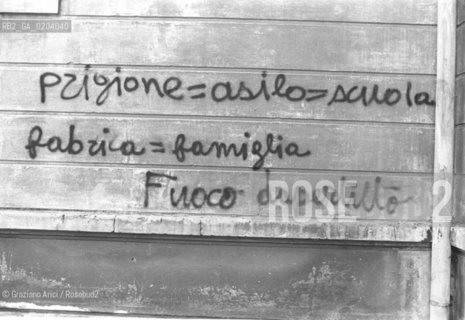 RB2 GA 0204040
prigione=asilo=scuola
fabrica=famiglia
Fuoco
ROSEBUD2
© Graziano Arici / Rosebud2